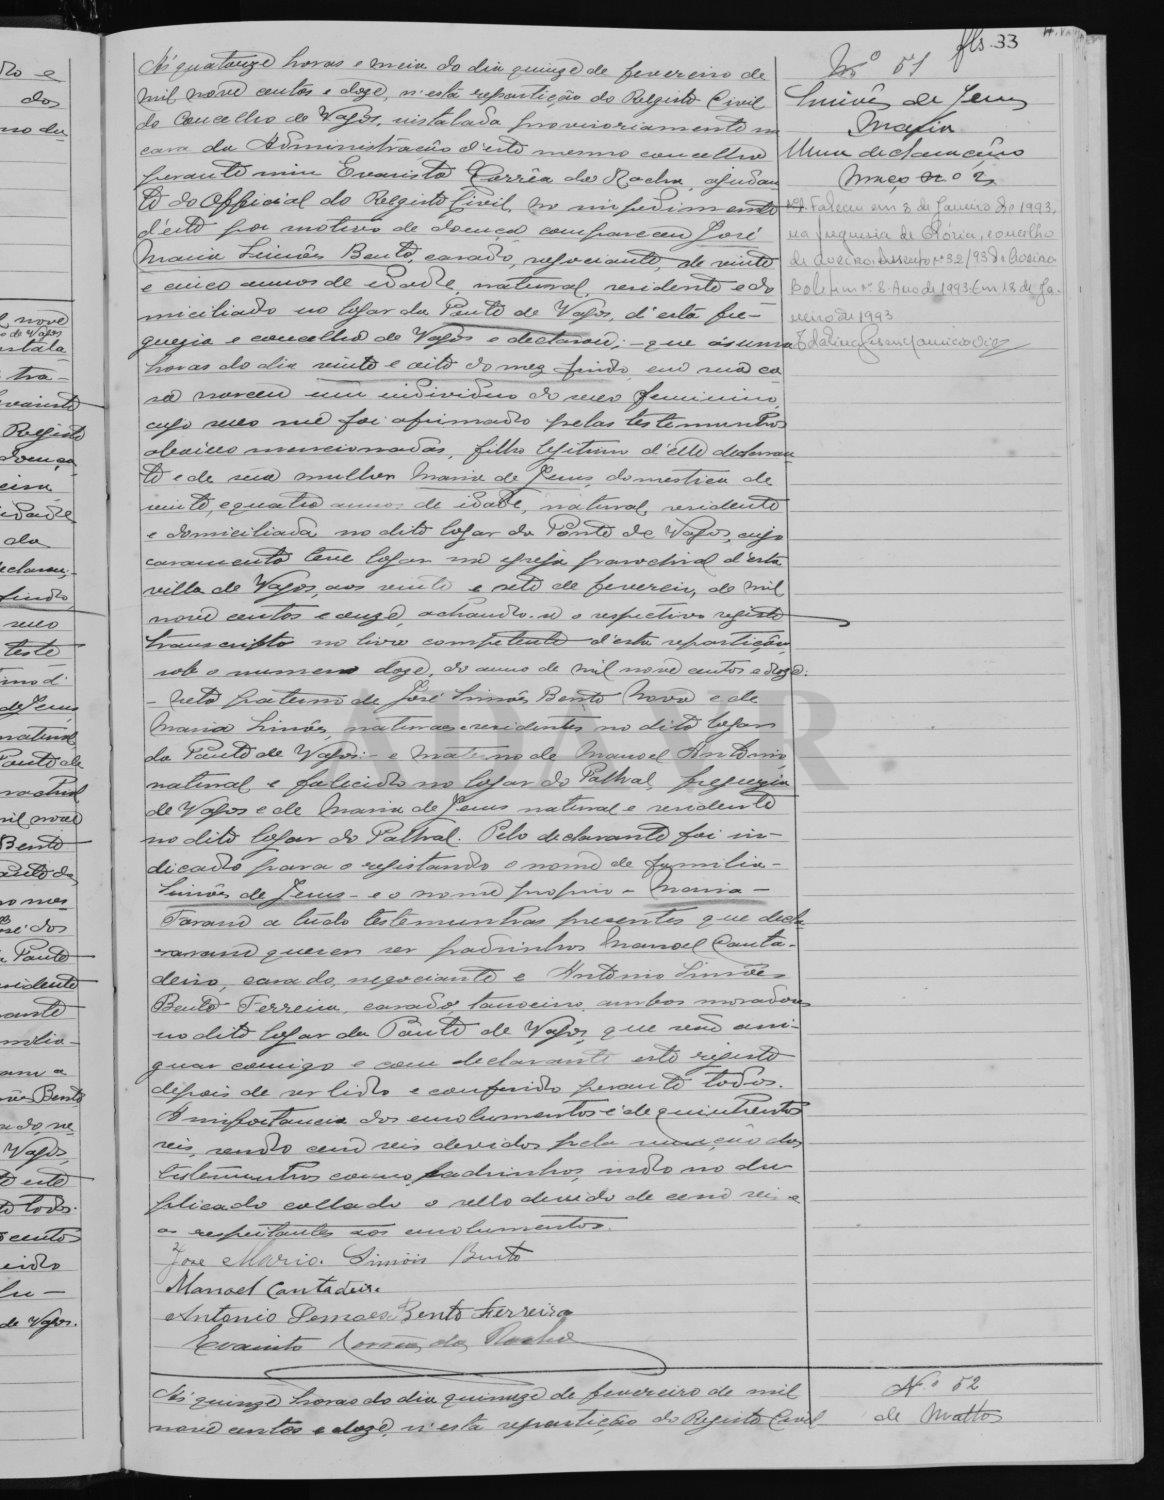 fls. 33
Ás quatorze horas e meia do dia quinze de fevereiro de
mil nove centos e doze, n'esta repartição do Registo Civil
do Concelho de Vagos, installada provisoriamente na
casa da Administração d'este mesmo concelho
perante mim Evaristo Corrêa da Rocha, ajudan-
te do Official do Registo Civil, no impedimento
d'este por motivo de doença compareceu José
Maria Simões Bento, casado, negociante, de vinte
e cinco annos de idade, natural, residente e do
miciliado no logar da Ponte de Vagos, d'esta fre-
guezia e concelho de Vagos e declarou: - que ás uma
horas do dia vinte e oito do mez findo, em sua ca
sa nasceu um individuo do sexo feminino,
cujo sexo me foi afirmado pelas testemunhas
abaixo mencionadas, filho legitimo d'elle declaran
te e de sua mulher Maria de Jesus, domestica de
vinte e quatro annos de idade, natural, residente
e domiciliada no dito logar da Ponte de Vagos, cujo
casamento teve logar na egreja parochial d'esta
villa de Vagos, aos vinte e sete de fevereiro, de mil
nove centos e onze, achando-se o respectivo registo
transcripto no livro competente d'esta repartição
sob o numero doze, do anno de mil nove centos e doze:
- Neto paterno de José Simões Bento Novo e de
Maria Simões, naturaes e residentes no dito logar
da Ponte de Vagos: e materno de Manoel Antonio,
natural e falecido no logar do Palhal, freguezia
de Vagos e de Maria de Jesus natural e residente
no dito logar do Palhal. Pelo declarante foi in-
dicado para o registando o nome de familia -
Simões de Jesus - e o nome proprio - Maria -
Foram a tudo testemunhas presentes que decla
raram querer ser padrinhos Manoel Canta-
deiro, casado, negociante e Antonio Simões
Bento Ferreira, casado, tanoeiro, ambos moradores
no dito logar da Ponte de Vagos, que vão assi-
gnar comigo e com declarante este registo
depois de ser lido e conferido perante todos.
A importancia dos emolumentos é de quinhentos
reis, sendo cem reis devidos pela menção das
testemunhas como padrinhos, indo no du
plicado collado o sello devido de cem reis e
os respeitantes aos emolumentos.
José Maria Simões Bento
Manoel Cantadeiro
Antonio Semoes Bento Ferreira
Evaristo Corrêa da Rocha
Ás quinze horas do dia quinze de fevereiro de mil
nove centos e doze, n'esta repartição do Registo Civil
Nº 51
Simões de Jesus
Maria
Uma declaração
Maço nº 2
Nº1. Faleceu em 8 de Janeiro de 1993,
na freguesia da Glória, concelho
de Aveiro. Assento nº 32/93 de Aveiro.
Boletim nº 8. Ano de 1993. Em 18 de Ja-
neiro de 1993
Nº 52
de Mattos
AVAVR